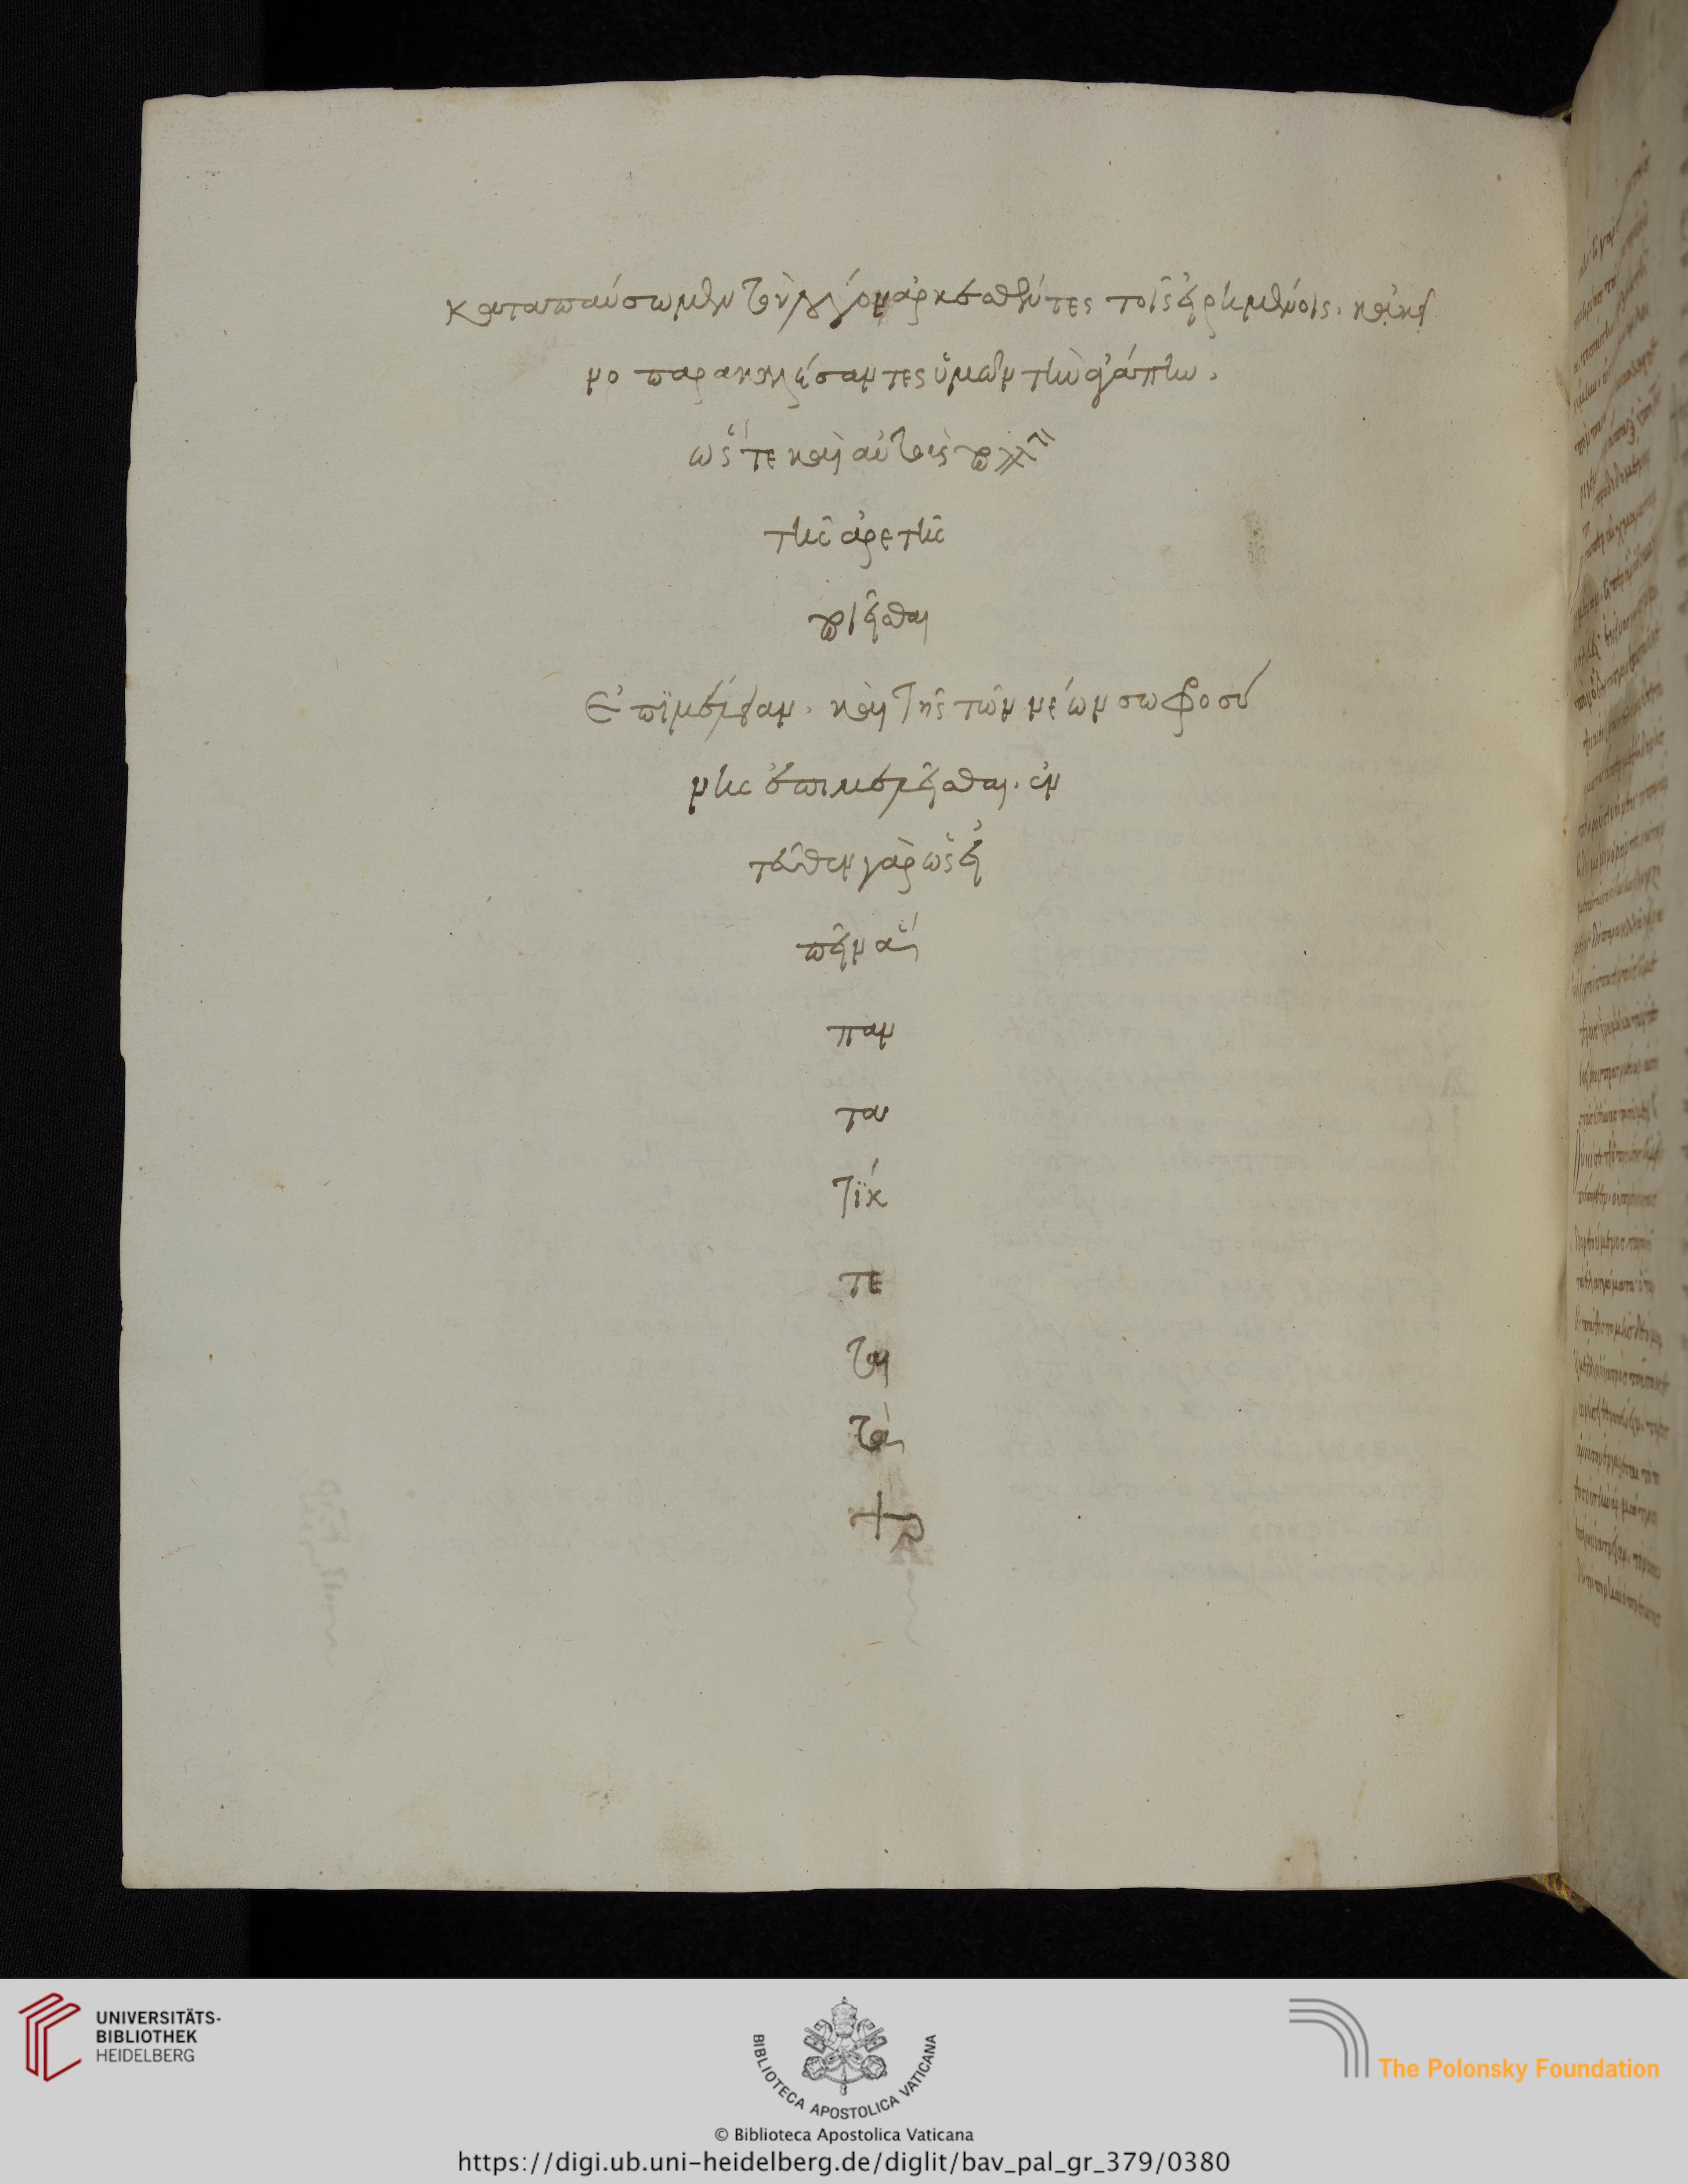 καταπαύσωμεν τὸν λόγον ἀρκεσθέντες τοῖς εἰρημένοις. κἀκεῖ
νο παρακαλέσαντες ὑμῶν τὴν ἀγάπην.
ὥς τε καὶ αὐτοὺς
τῆς ἀρετῆς
ποιεῖσθαι
ἐπϊμέλειαν. καὶ τῆς τῶν νέων σωφροσύ
νης ἐπιμελεῖσθαι. ἐν
τεῦθεν γὰρ ὡς εἰ
πεῖν ἅ
παν
τα
τϊκ
τε
ται
τὰ
UNIVERSITÄTS-
BIBLIOTHEK
HEIDELBERG
BIBLIOTECA APOSTOLICA VATICANA
The Polonsky Foundation
© Biblioteca Apostolica Vaticana
https://digi.ub.uni-heidelberg.de/diglit/bav_pal_gr_379/0380